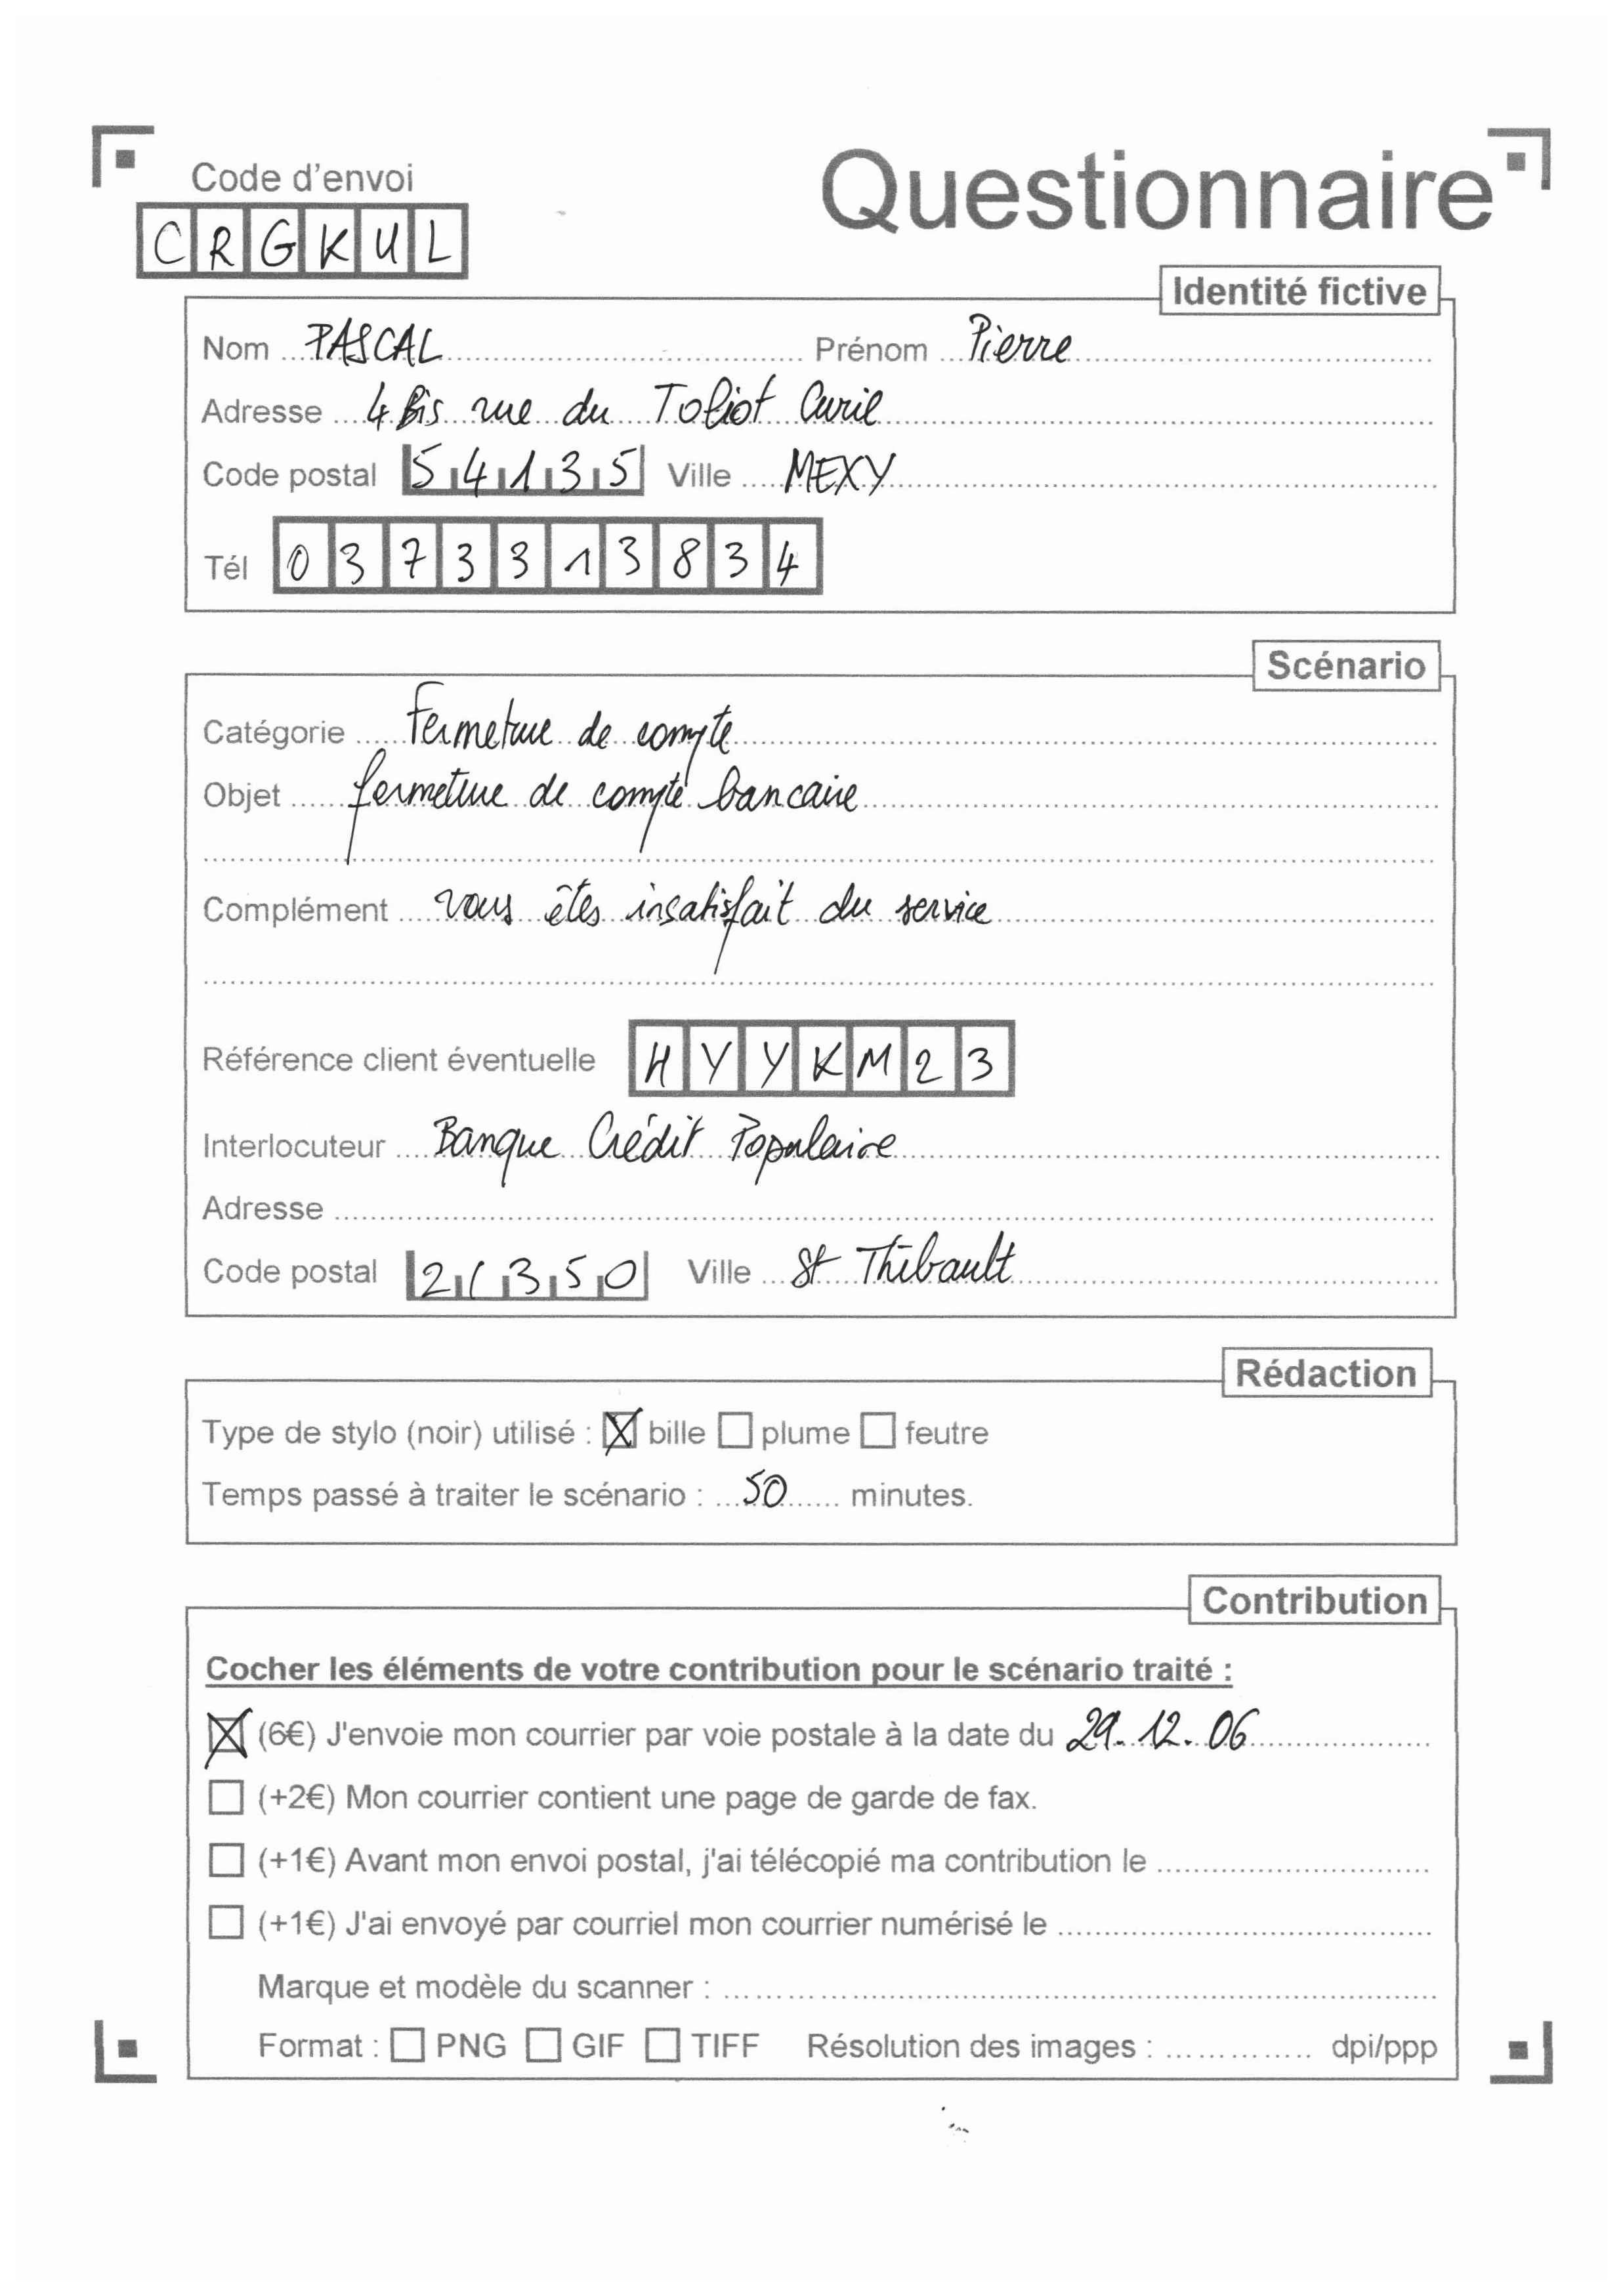 Code d'envoi
Questionnaire
CRGKUL
Identité fictive
Nom PASCAL Prénom Pierre
Adresse 4 Bis rue du Toliot Curil
Code postal 54135 Ville MEXY
Tél 0373313834
Scénario
Catégorie Fermeture de compte
Objet fermeture de compte bancaire
Complément vous êtes insatisfait du service
Référence client éventuelle HYYKM23
Interlocuteur Banque Crédit Populaire
Adresse
Code postal 21350 Ville St Thibault
Rédaction
Type de stylo (noir) utilisé : bille plume feutre
Temps passé à traiter le scénario : 50 minutes.
Contribution
Cocher les éléments de votre contribution pour le scénario traité :
(6€) J'envoie mon courrier par voie postale à la date du 29.12.06
(+2€) Mon courrier contient une page de garde de fax.
(+1€) Avant mon envoi postal, j'ai télécopié ma contribution le
(+1€) J'ai envoyé par courriel mon courrier numérisé le
Marque et modèle du scanner :
Format : PNG GIF TIFF Résolution des images : dpi/ppp